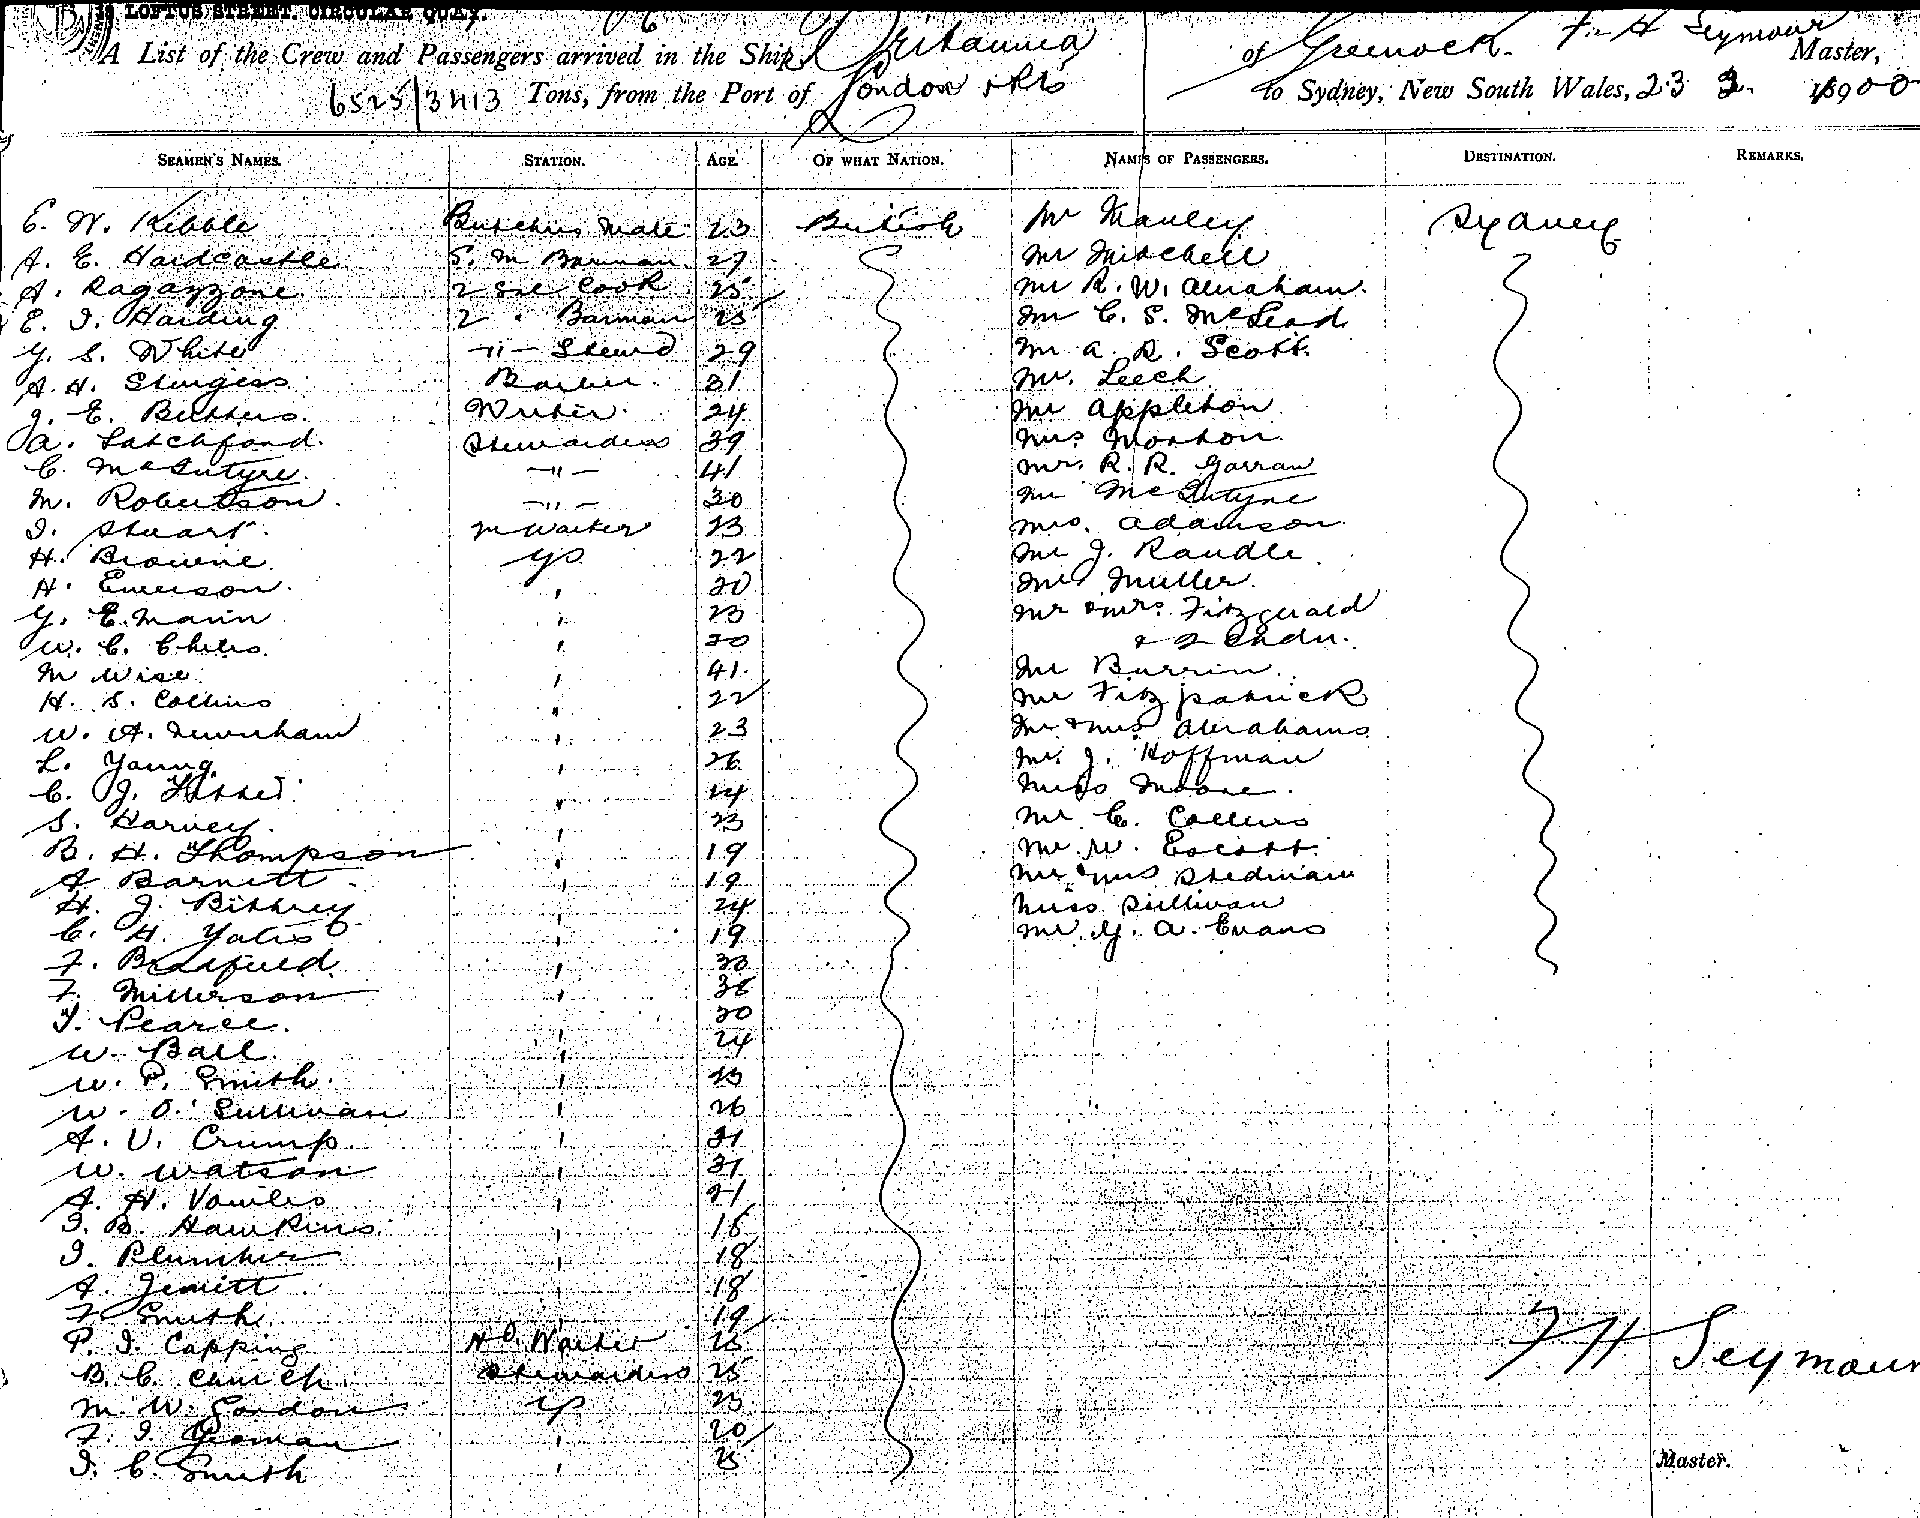 LOFTUS STREET. CIRCULAR QUAY.
A List of the Crew and Passengers arrived in the Ship Britannia of Greenock. F. H Seymour Master,
6525/3413 Tons, from the Port of London to Sydney, New South Wales, 23 1900
SEAMEN'S NAMES. STATION. AGE. OF WHAT NATION. NAMES OF PASSENGERS. DESTINATION. REMARKS.
E. W. Kibble Butchers Mate 23 British Mr Manley Sydney
A. E. Hardcastle S. M Barman 27 Mr Mitchell
A. Ragazzone 2 Cook 25 Mr R. W. Abraham.
E. I. Harding 2 " Barman 25 Mr C. S. McLeod
G. S. White -"- Stewd 29 Mr A. R. Scott.
A. H. Sturgess Barber. 31 Mr. Leech
J. E. Butters. Writer. 24 Mr Appleton
A. Latchford. Stewardess 39 Mrs Morton
C. McIntyre. -"- 41 Mr. R. R. Garran
M. Robertson. -"- 30 Mr McIntyre
I. Stuart. M Waiter 23 Mrs. Adamson
H. Browne. 22 Mr J. Randle
H. Emerson. " 20 Muller.
G. E. Mann " 23 Mr & Mrs. Fitzgerald
W. C. " 20 & 2 Chdn.
M Wise " 41. Mr Burrin.
H. S. Collins " 22 Mr Fitzpatrick
W. A. Newnham " 23 Mr & Mrs Abrahams
L. Young " 26 Mr. J. Hoffman
C. J. " 24 Miss Moore.
S. Harvey. " 23 Mr C. Collins
B. H. Thompson " 19 Mr W. Escott.
A Barnett. " 19 Mr & Mrs Stedman
H. J. Bithrey " 24 Miss Sullivan
C. H. Yates " 19 Mr G. A. Evans
F. Bradfield. " 30
F. Millerson " 36
I. Pearce. " 20
W. Ball. " 24
W. P. Smith. " 23
W. O. Sullivan " 26
A. V. Crump. " 31
W. Watson " 31
A. H. Vowles " 21
I. B. Hawkins. " 18
I. Plumber " 18
A. Jewitt " 18
F Smith. " 19
P. I. Capping Hd. Waiter 25
B. C. Stewardess 25 F H Seymour
M. W. Gordon 23
F. I. Yeoman " 20
I. C. Smith " 25 Master.